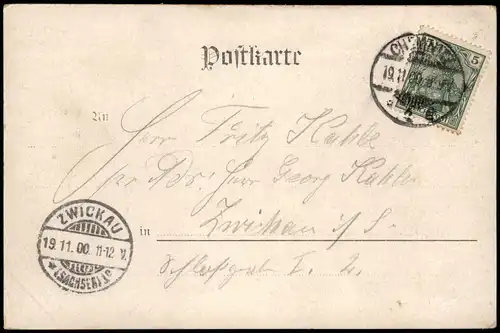 Postkarte
5
CHEMNITZ
19.11.00.
An
Herr Fritz Kahle
per Adr. Herr Georg Kahle
in Zwickau i/S.
I. 2.
ZWICKAU
19.11.00. 11-12 V.
* (SACHSEN) 1 c